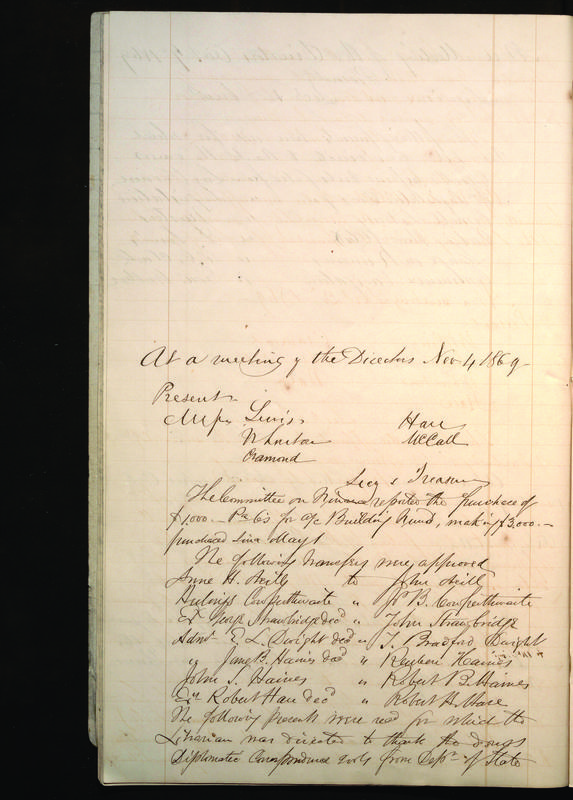 At a meeting of the Directors Nov 4, 1869
Present
Messrs Lewis Hare
Wharton McCall
Ormond
Secy & Treasurer
The Committee on Finance reported the purchase of
$1,000.— Pa 6s for a/c Building Fund, making $3,000.—
purchased since May 1
The following transfers were approved
Anne H. Neill to John Neill
Hulings Cowperthwaite " Jos B. Cowperthwaite
Exr George Strawbridge decd " John Strawbridge
Admr E. L. Dwight decd " T. Bradford Dwight
" Jane B. Haines decd " Reuben Haines
John S. Haines " Robert B. Haines
Exr Robert Hare decd " Robert H. Hare
The following presents were recd for which the
Librarian was directed to thank the donors
Diplomatic Correspondence vols from Dept of State